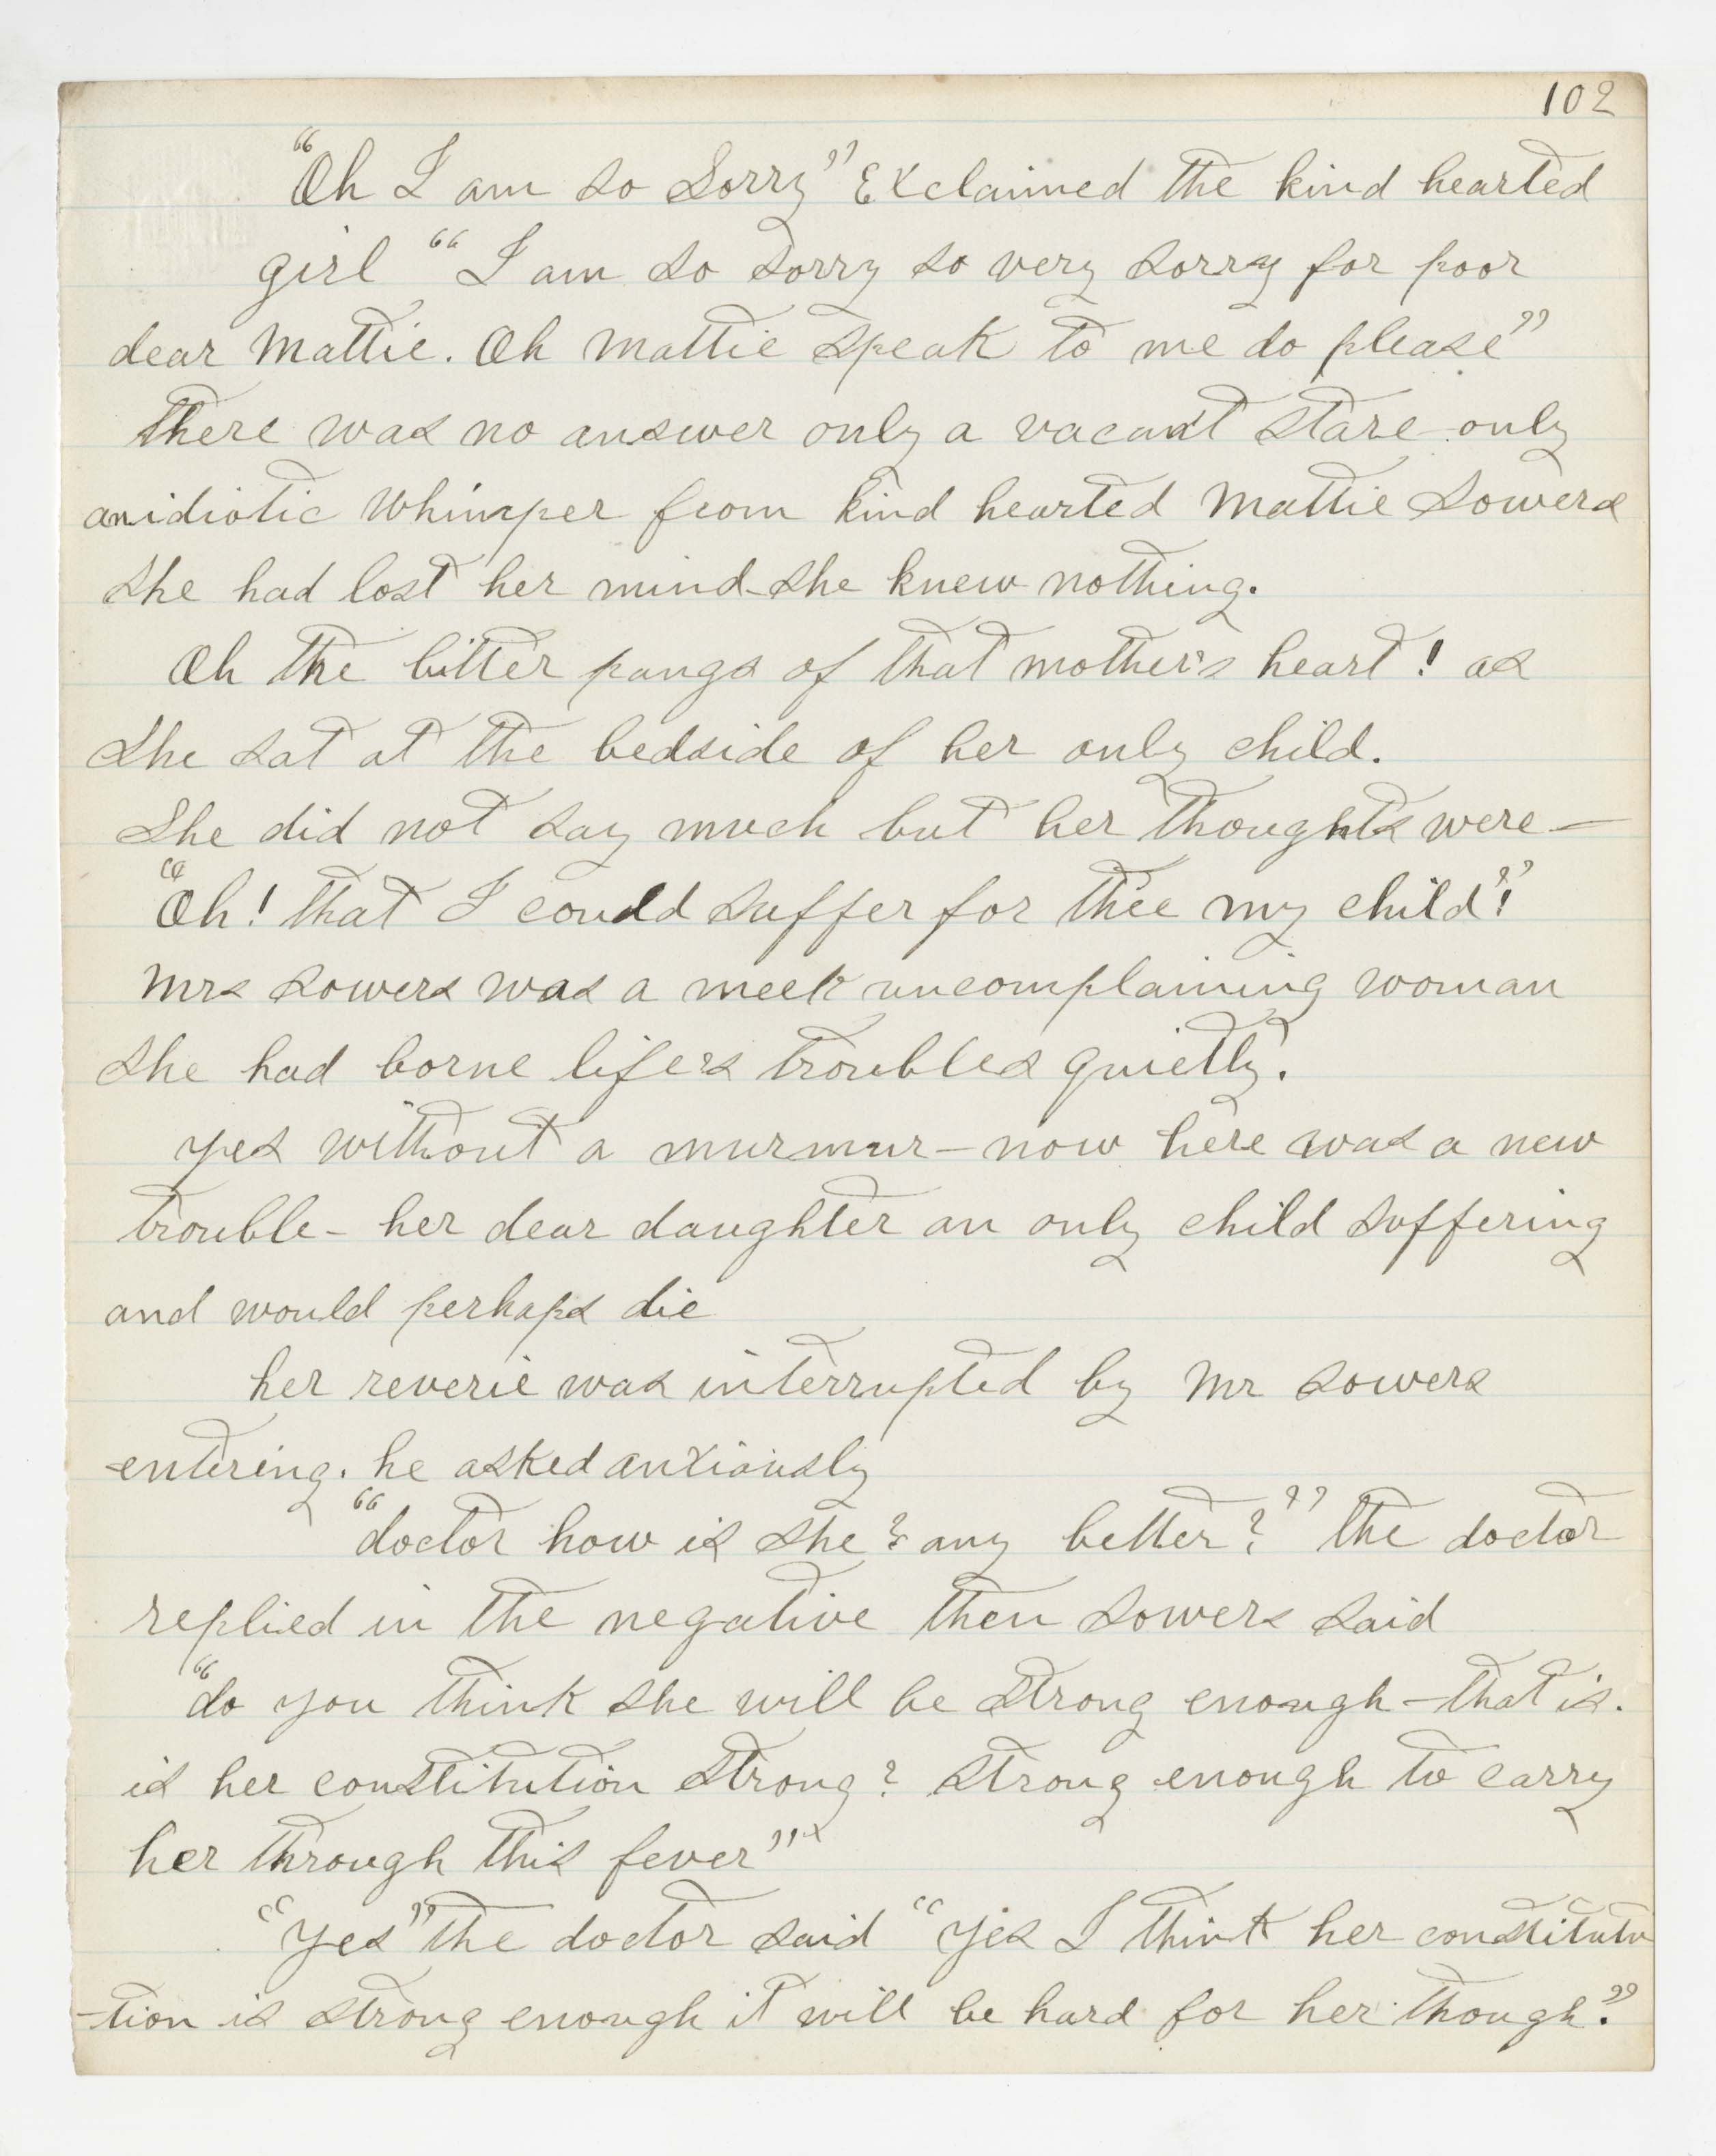 102
"Oh I am so Sorry" Exclaimed the kind hearted
girl "I am so sorry so very sorry for poor
dear Mattie. Oh Mattie speak to me do please"
there was no answer only a vacant stare only
an idiotic whimper from kind hearted Mattie Sowers
she had lost her mind - she knew nothing.
Oh the bitter pangs of that mother's heart! as
she sat at the bedside of her only child.
She did not say much but her thoughts were —
"Oh! that I could suffer for thee my child"!
Mrs Sowers was a meek uncomplaining woman
she had borne life's troubles quietly.
yes without a murmur — now here was a new
trouble - her dear daughter an only child suffering
and would perhaps die
her reverie was interrupted by Mr Sowers
entering. he asked anxiously
"doctor how is she? any better?" the doctor
replied in the negative then Sowers said
"do you think she will be strong enough - that is.
is her constitution strong? strong enough to carry
her through this fever"
"Yes" the doctor said "Yes I think her constitu
-tion is strong enough it will be hard for her though."